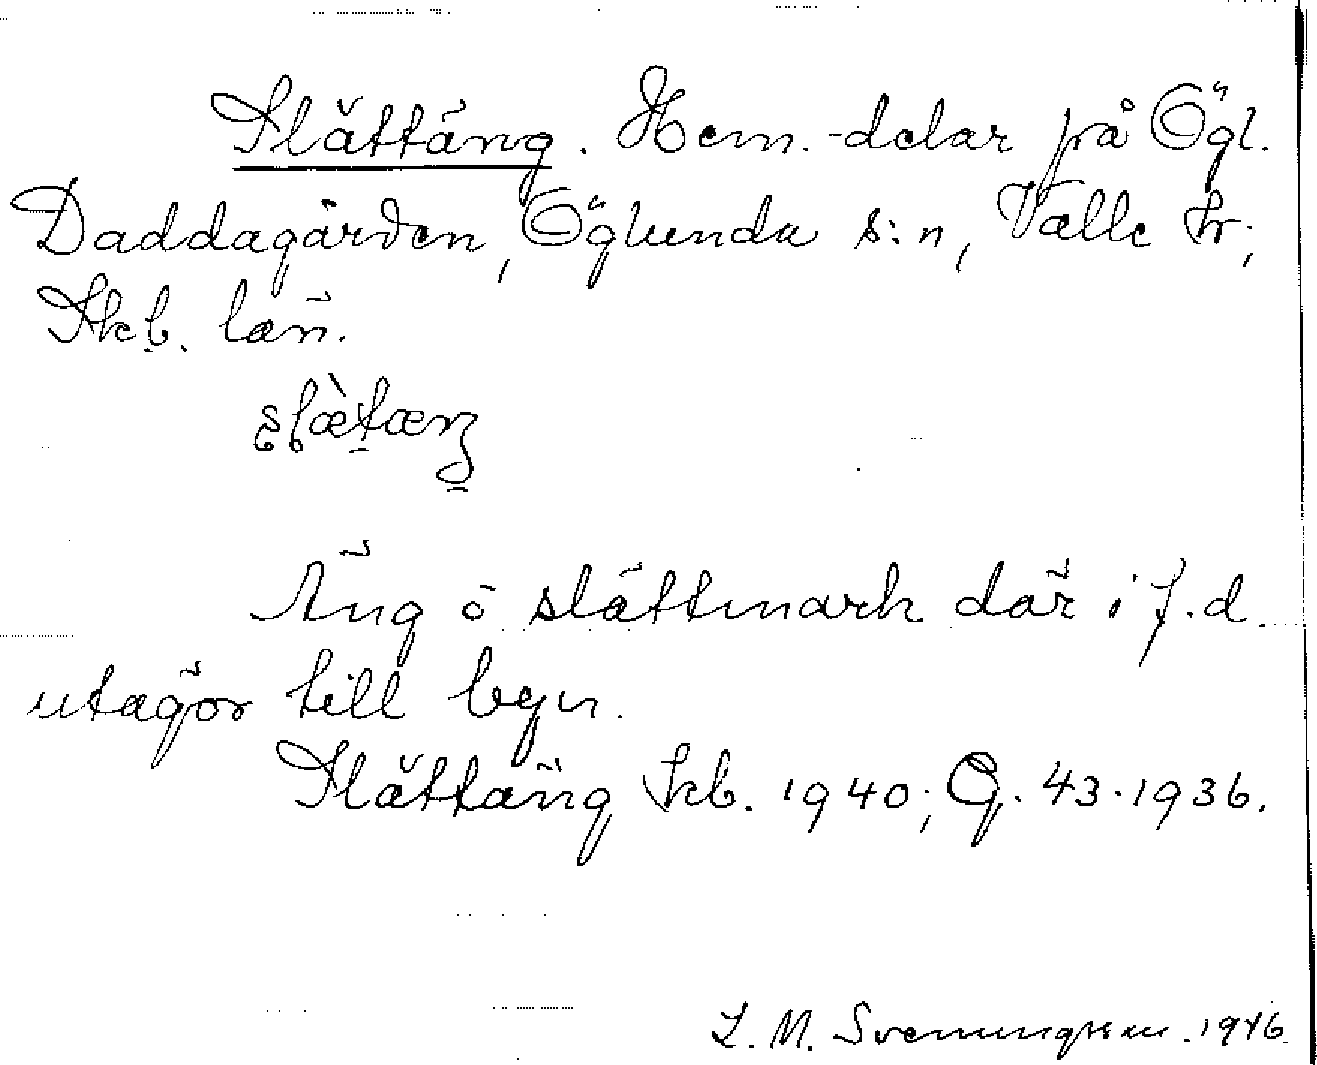 Slättäng. Hem.-delar på Ögl.
Daddagården, Öglunda s:n, Valle hr;
Skb. län.
Äng o slåttmark där i f.d.
utagor till byn.
Slättäng Jrb. 1940; G. 43.1936.
L. M. Svenungsson. 1946